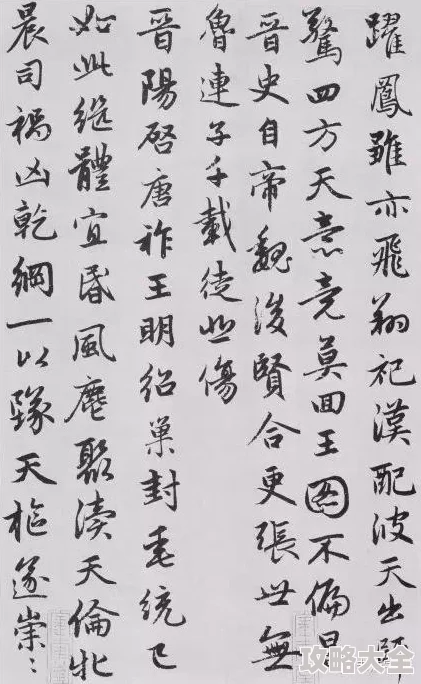 躍鳳雛亦飛翔祀漢配彼天出師
驚四方天意竟莫回王圖不偏昌
晉史自帝魏後賢合更張世無
魯連子千載徒悲傷
晉陽啓唐祚王明紹巢封垂統已
如此繼體宜昏風麀聚瀆天倫牝
晨司禍凶乾綱一以隳天樞遂崇〻
攻略大全